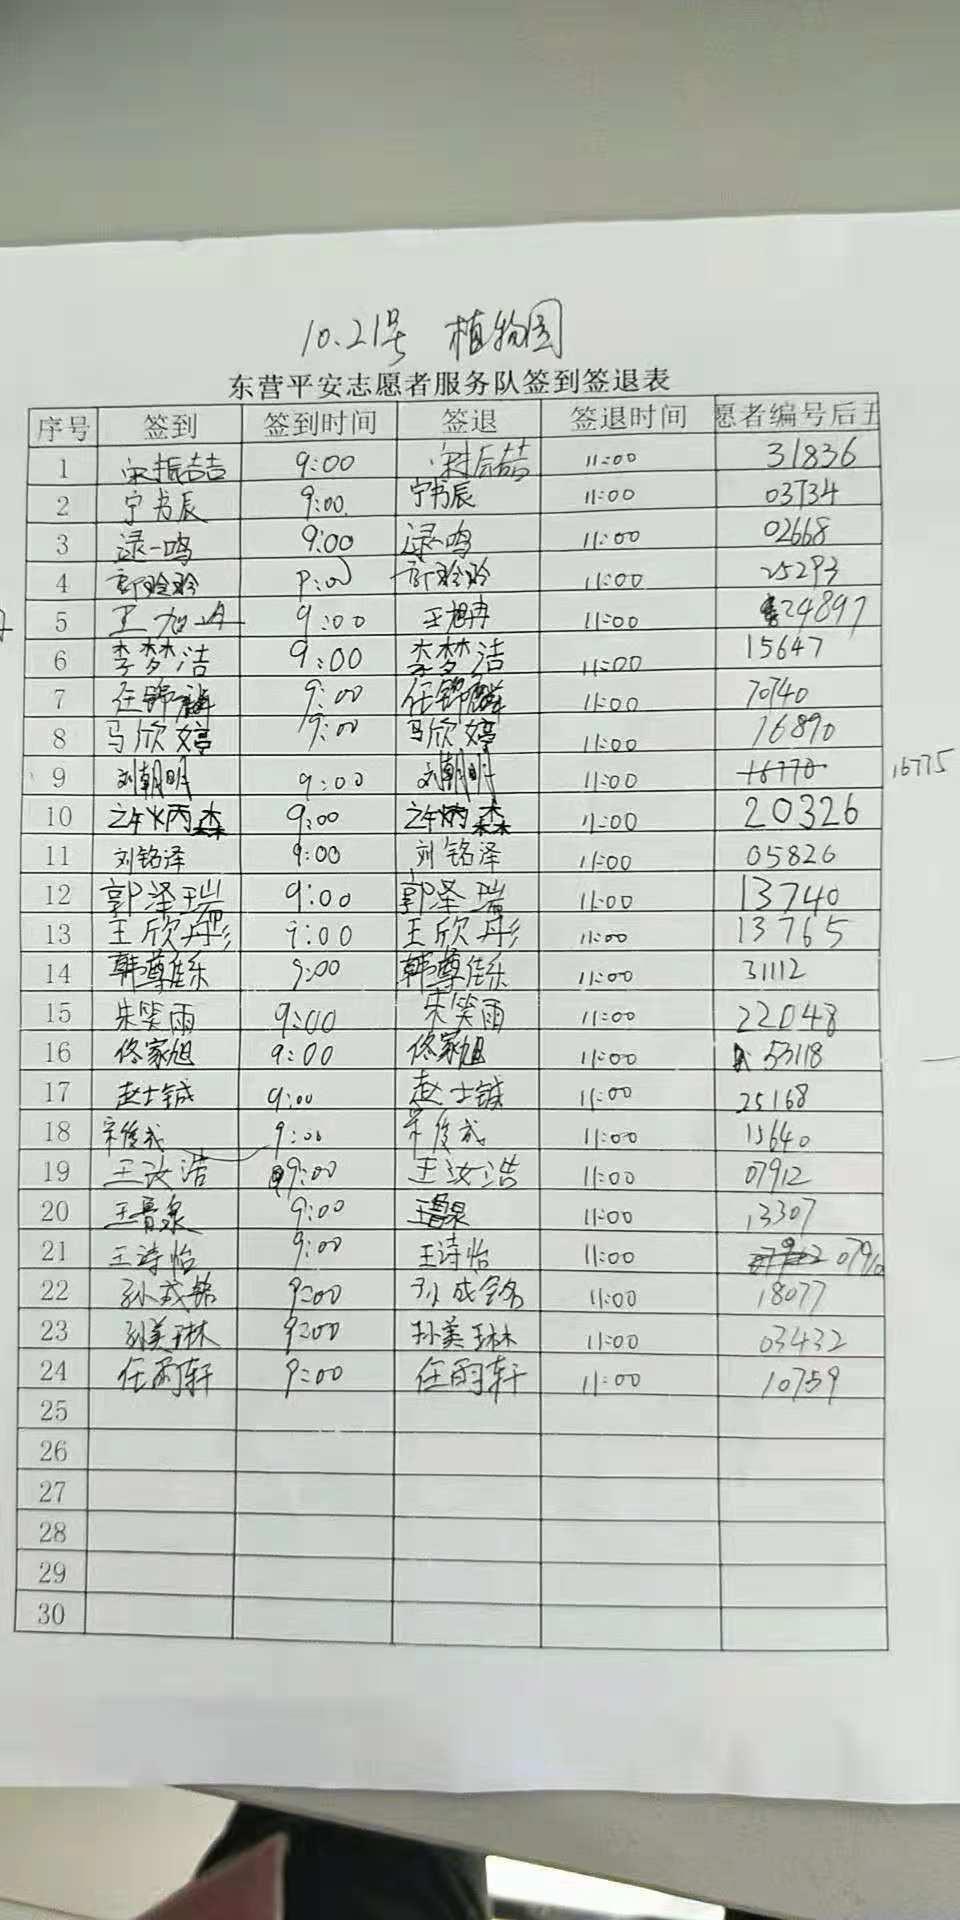 10.21号 植物园
东营平安志愿者服务队签到签退表
序号 签到 签到时间 签退 签退时间 愿者编号后五
1 宋振喆 9:00 宋振喆 11:00 31836
2 宁书辰 9:00 宁书辰 11:00 03734
3 逯一鸣 9:00 逯一鸣 11:00 02668
4 9:00 11:00 25293
5 王 9:00 王旭冉 11:00 24897
6 李梦洁 9:00 李梦洁 11:00 15647
7 任锦麟 9:00 任锦麟 11:00 70740
8 马欣婷 9:00 马欣婷 11:00 16890
9 刘朝明 9:00 刘朝明 11:00 16770 16775
10 9:00 11:00 20326
11 刘铭泽 9:00 刘铭泽 11:00 05826
12 郭泽瑞 9:00 郭泽瑞 11:00 13740
13 王欣彤 9:00 王欣彤 11:00 13765
14 韩尊佳乐 9:00 韩尊佳乐 11:00 31112
15 朱笑雨 9:00 朱笑雨 11:00 22048
16 佟家旭 9:00 佟家旭 11:00 53118
17 赵士铖 9:00 赵士铖 11:00 25168
18 宋俊成 9:00 宋俊成 11:00 15640
19 王汝浩 9:00 王汝浩 11:00 07912
20 9:00 11:00 13307
21 王诗怡 9:00 王诗怡 11:00
22 孙成铭 9:00 孙成铭 11:00 18077
23 孙美琳 9:00 孙美琳 11:00 03432
24 任雨轩 9:00 任雨轩 11:00 10759
25
26
27
28
29
30